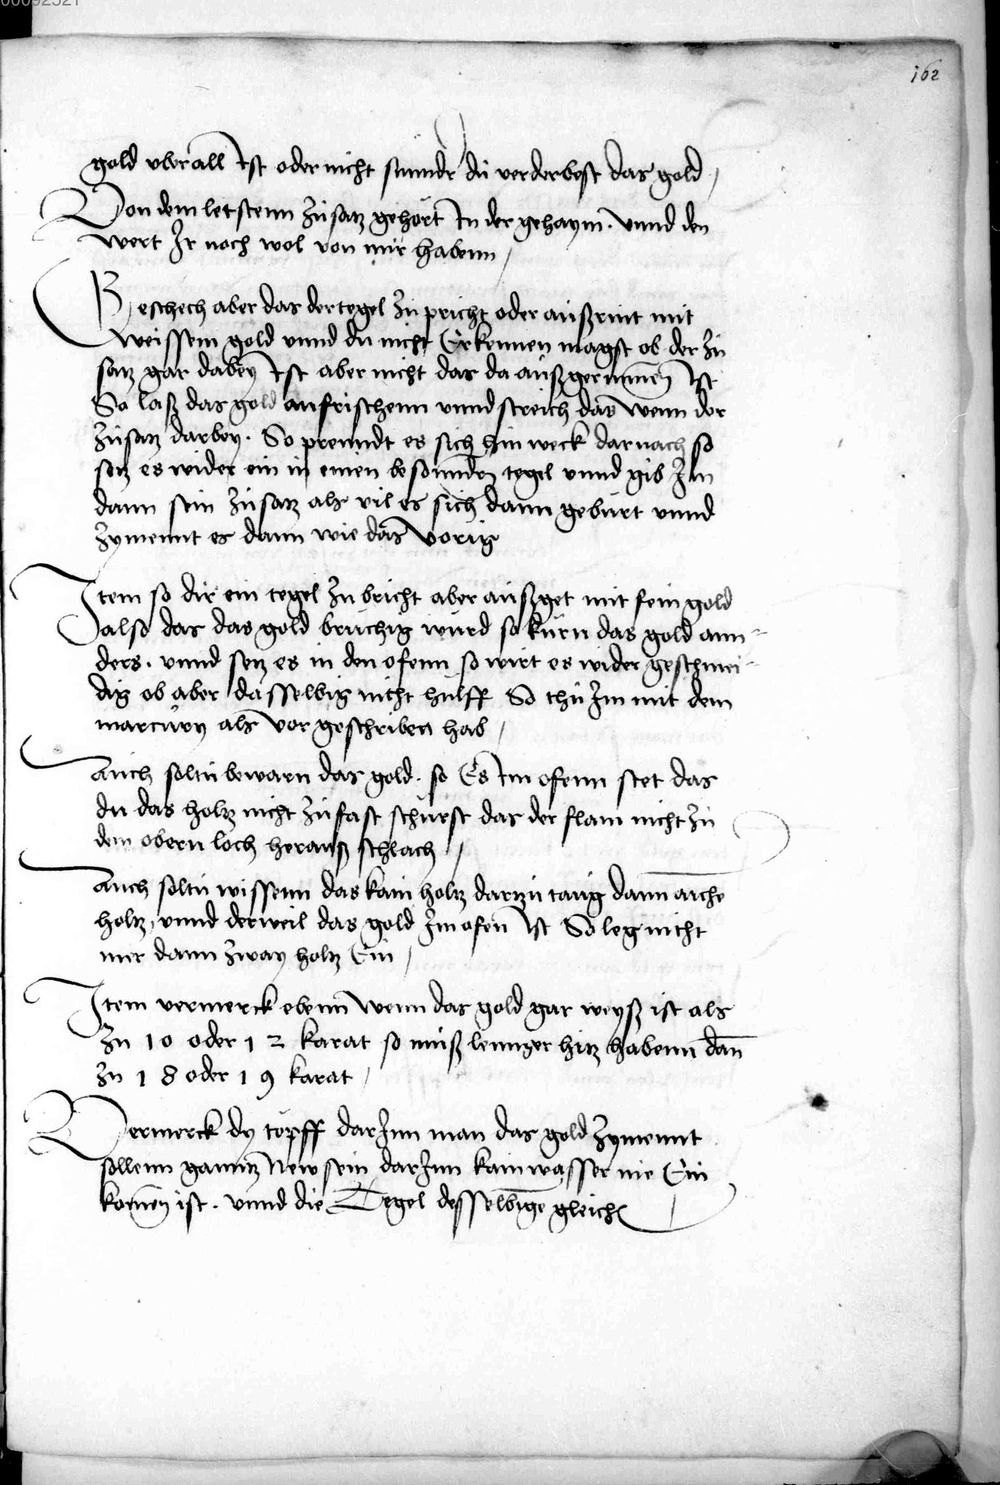 00092521
162
gold vberall Ist oder nicht sunndr du verderbest das gold /
Von dem letstenn zusatz gehört In der gehaym . vnnd den
wert Ir noch wol von mir habenn /
Beschech aber das der tegel zu pricht oder außrint mit
weissem gold vnnd du nicht Erkennen magst ob der zu
satz gar dabey Ist aber nicht das da außgerunnen Ist
So laß das gold anfrischenn vnnd streich das wenn der
zusatz darbey . So prenndt es sich hin weck darnach so
setz es wider ein in einen besonnder tegel vnnd gib Im
dann sein zusatz als vil es sich dann geburt vnnd
zymennt es dann wie das vorig
Item so dir ein tegel zu bricht aber außget mit fein gold
also das das gold bruchig wurd so kurn das gold ann-
ders . vnnd setz es in den ofenn so wirt es wider geschmei-
dig ob aber dasselbig nicht hulff So thu Im mit dem
marcury als vor geschriben hab /
Auch soltu bewarn das gold . so Es Im ofenn stet das
du das holtz nicht zu fast schurst das der flam nicht zu
dem obern loch herauß schlach /
Auch soltu wissenn das kain holtz dartzu taug dann aiche
holtz , vnnd derweil das gold Im ofen Ist So leg nicht
mer dann zway holtz Ein /
Item vermerck ebenn wenn das gold gar weyß ist als
zu 10 oder 12 karat so muß lennger hitz habenn dan
zu 18 oder 19 karat /
Vermerck dy töpff darInn man das gold zymennt
sollenn ganntz New sein darInn kain wasser nie Ein
komen ist . vnnd die Tegel desselbigen gleich